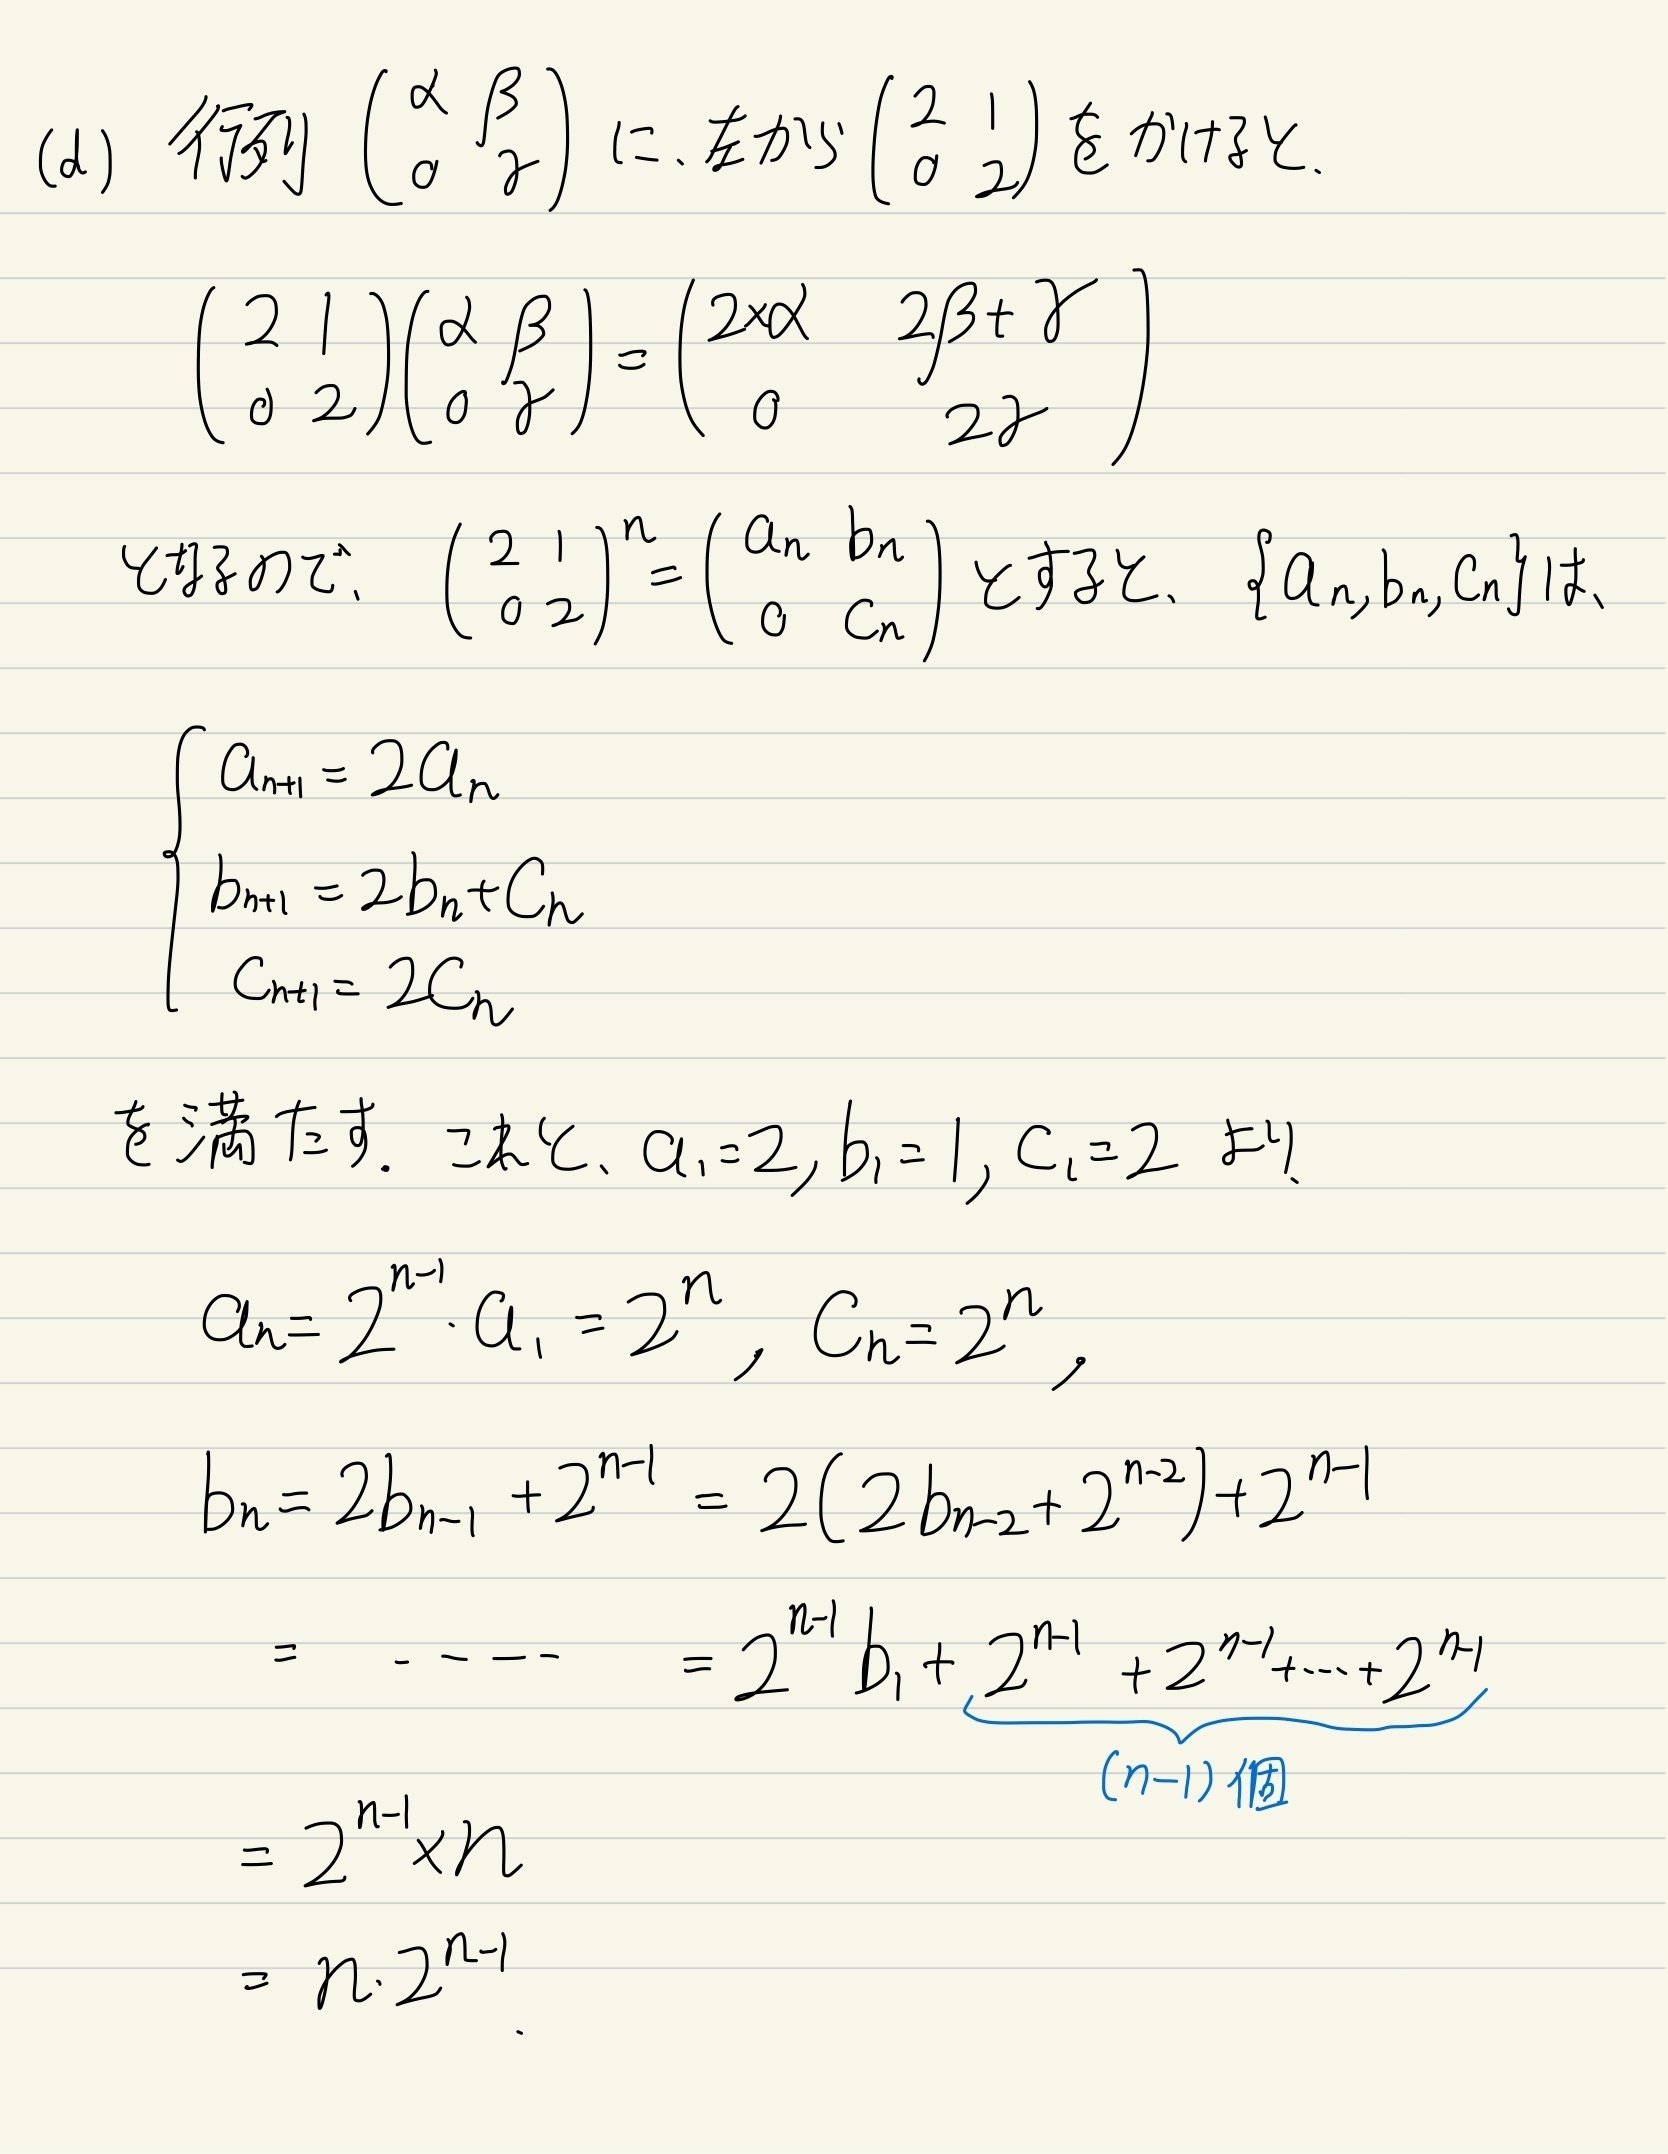 (d) 行列 (α β; 0 γ) に、左から (2 1; 0 2) をかけると、
(2 1; 0 2)(α β; 0 γ) = (2×α 2β+γ; 0 2γ)
となるので、 (2 1; 0 2)^n = (a_n b_n; 0 c_n) とすると、 {a_n, b_n, c_n} は、
{ a_{n+1} = 2a_n
b_{n+1} = 2b_n + c_n
c_{n+1} = 2c_n
を満たす. これと、 a_1 = 2, b_1 = 1, c_1 = 2 より、
a_n = 2^{n-1} · a_1 = 2^n , c_n = 2^n ,
b_n = 2b_{n-1} + 2^{n-1} = 2(2b_{n-2} + 2^{n-2}) + 2^{n-1}
= ----- = 2^{n-1} b_1 + 2^{n-1} + 2^{n-1} + ··· + 2^{n-1}
(n-1) 個
= 2^{n-1} × n
= n · 2^{n-1} .